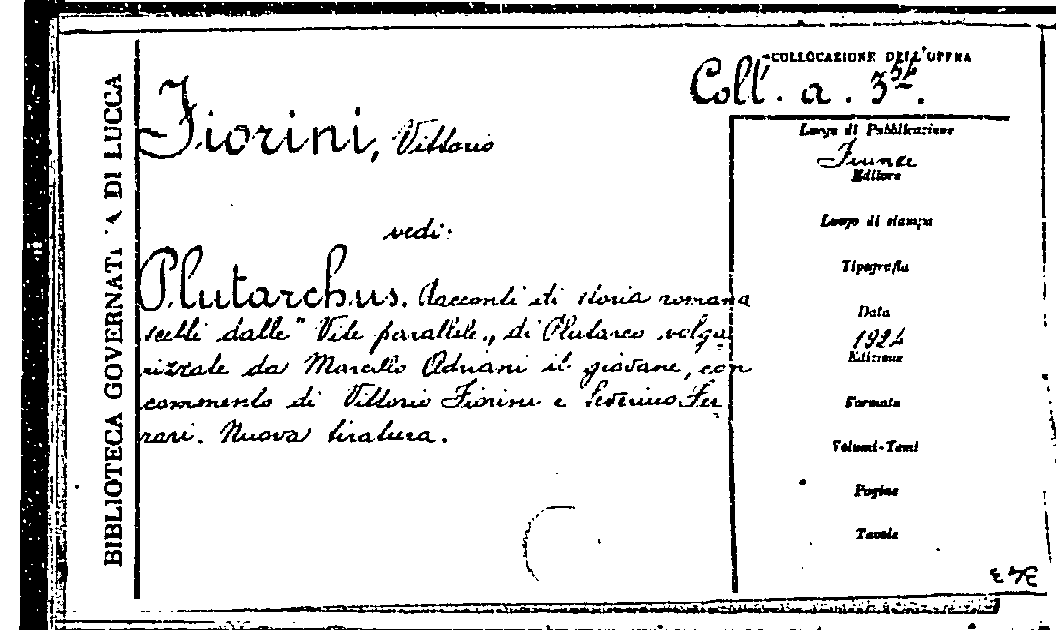 BIBLIOTECA GOVERNATIVA DI LUCCA
COLLOCAZIONE DELL'OPERA
Coll. a. 354.
Fiorini, Vittorio
vedi:
Plutarchus. Racconti di storia romana
scelti dalle "Vite parallele„ di Plutarco volga
rizzate da Marcello Adriani il giovane, con
commento di Vittorio Fiorini e Severino Fer
rari. Nuova tiratura.
Luogo di Pubblicazione
Firenze
Editore
Luogo di stampa
Tipografia
Data
1924
Edizione
Formato
Volumi-Tomi
Pagine
Tavole